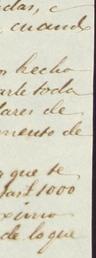 das, e
cuando
hecho
arle toda
lares de
mento de
que se
1000
ximo
de lo que